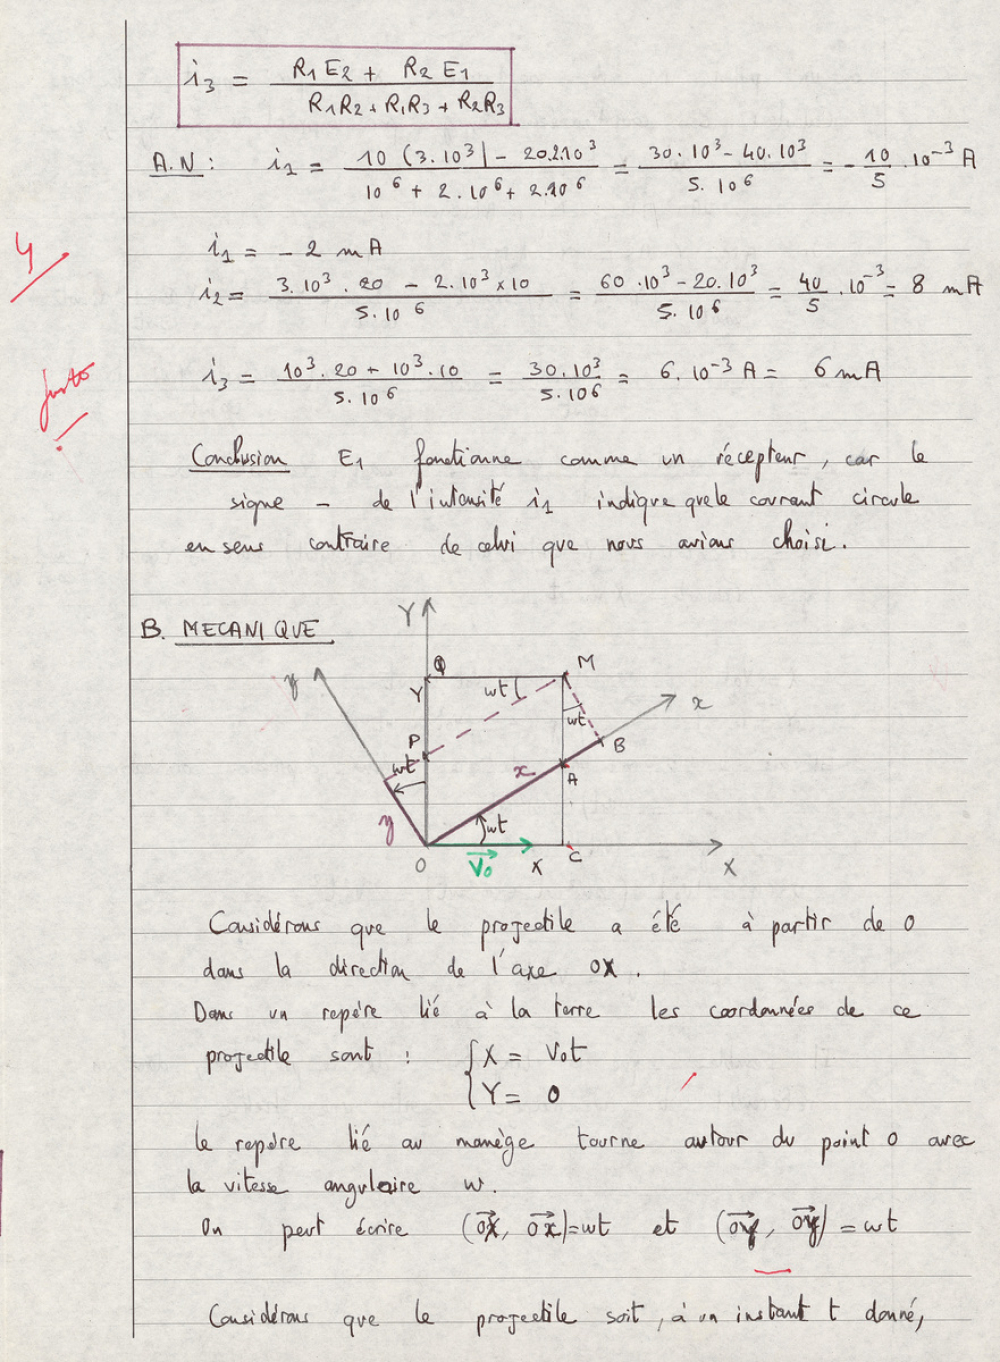 i₃ = (R₁E₂ + R₂E₁) / (R₁R₂ + R₁R₃ + R₂R₃)
A.N : i₁ = (10 (3.10³) - 20.2.10³) / (10⁶ + 2.10⁶ + 2.10⁶) = (30.10³ - 40.10³) / (5.10⁶) = - 10/5 .10⁻³ A
4
i₁ = - 2 mA
i₂ = (3.10³ . 20 - 2.10³ × 10) / (5.10⁶) = (60.10³ - 20.10³) / (5.10⁶) = 40/5 .10⁻³ = 8 mA
i₃ = (10³.20 + 10³.10) / (5.10⁶) = (30.10³) / (5.10⁶) = 6.10⁻³ A = 6 mA
Conclusion E₁ fonctionne comme un récepteur, car le
signe - de l'intensité i₁ indique que le courant circule
en sens contraire de celui que nous avions choisi.
B. MECANIQUE
Y
Q
M
y
Y
wt
x
wt
P
B
wt
x
A
y
wt
O
V₀
X
C
X
Considérons que le projectile a été à partir de O
dans la direction de l'axe OX.
Dans un repère lié à la terre les coordonnées de ce
projectile sont : { X = V₀t
Y = 0
le repère lié au manège tourne autour du point O avec
la vitesse angulaire w.
On peut écrire (OX, Ox) = wt et (OY, Oy) = wt
Considérons que le projectile soit, à un instant t donné,